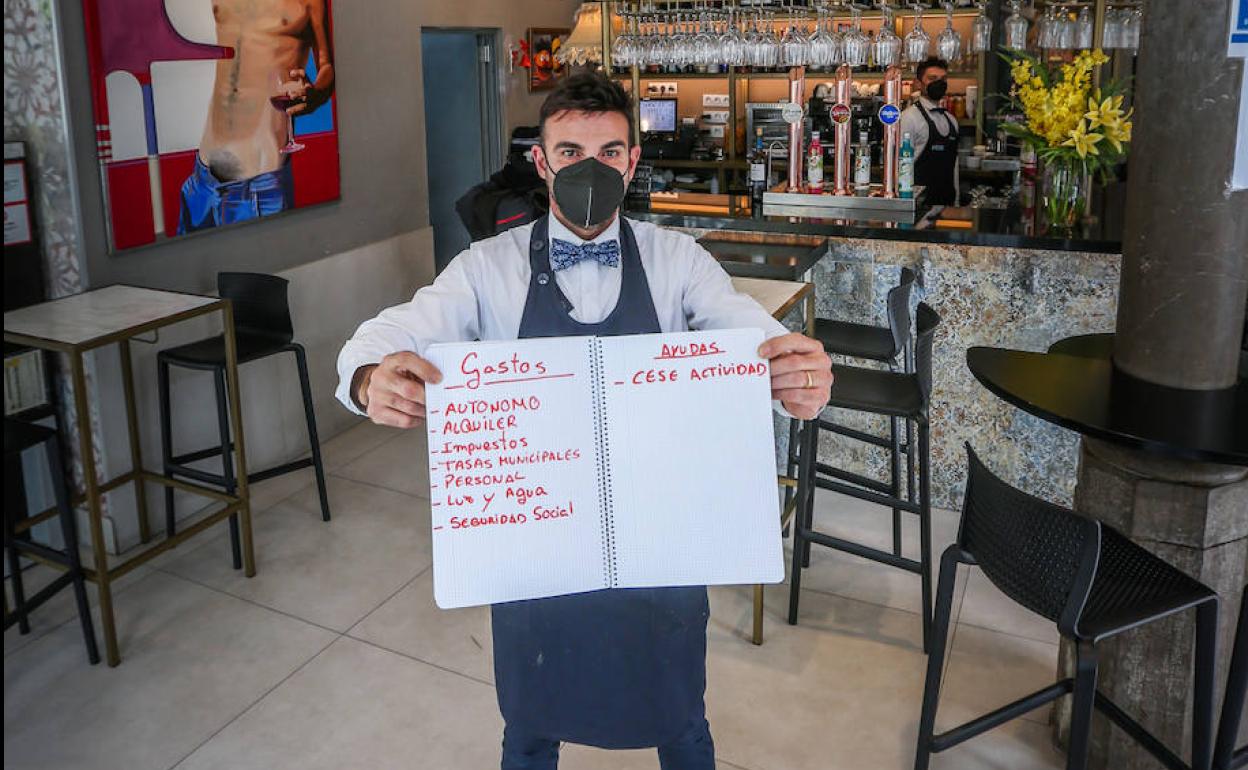 Gastos
- AUTONOMO
- ALQUILER
- Impuestos
- TASAS MUNICIPALES
- PERSONAL
- Luz y Agua
- SEGURIDAD Social
AYUDAS
- CESE ACTIVIDAD